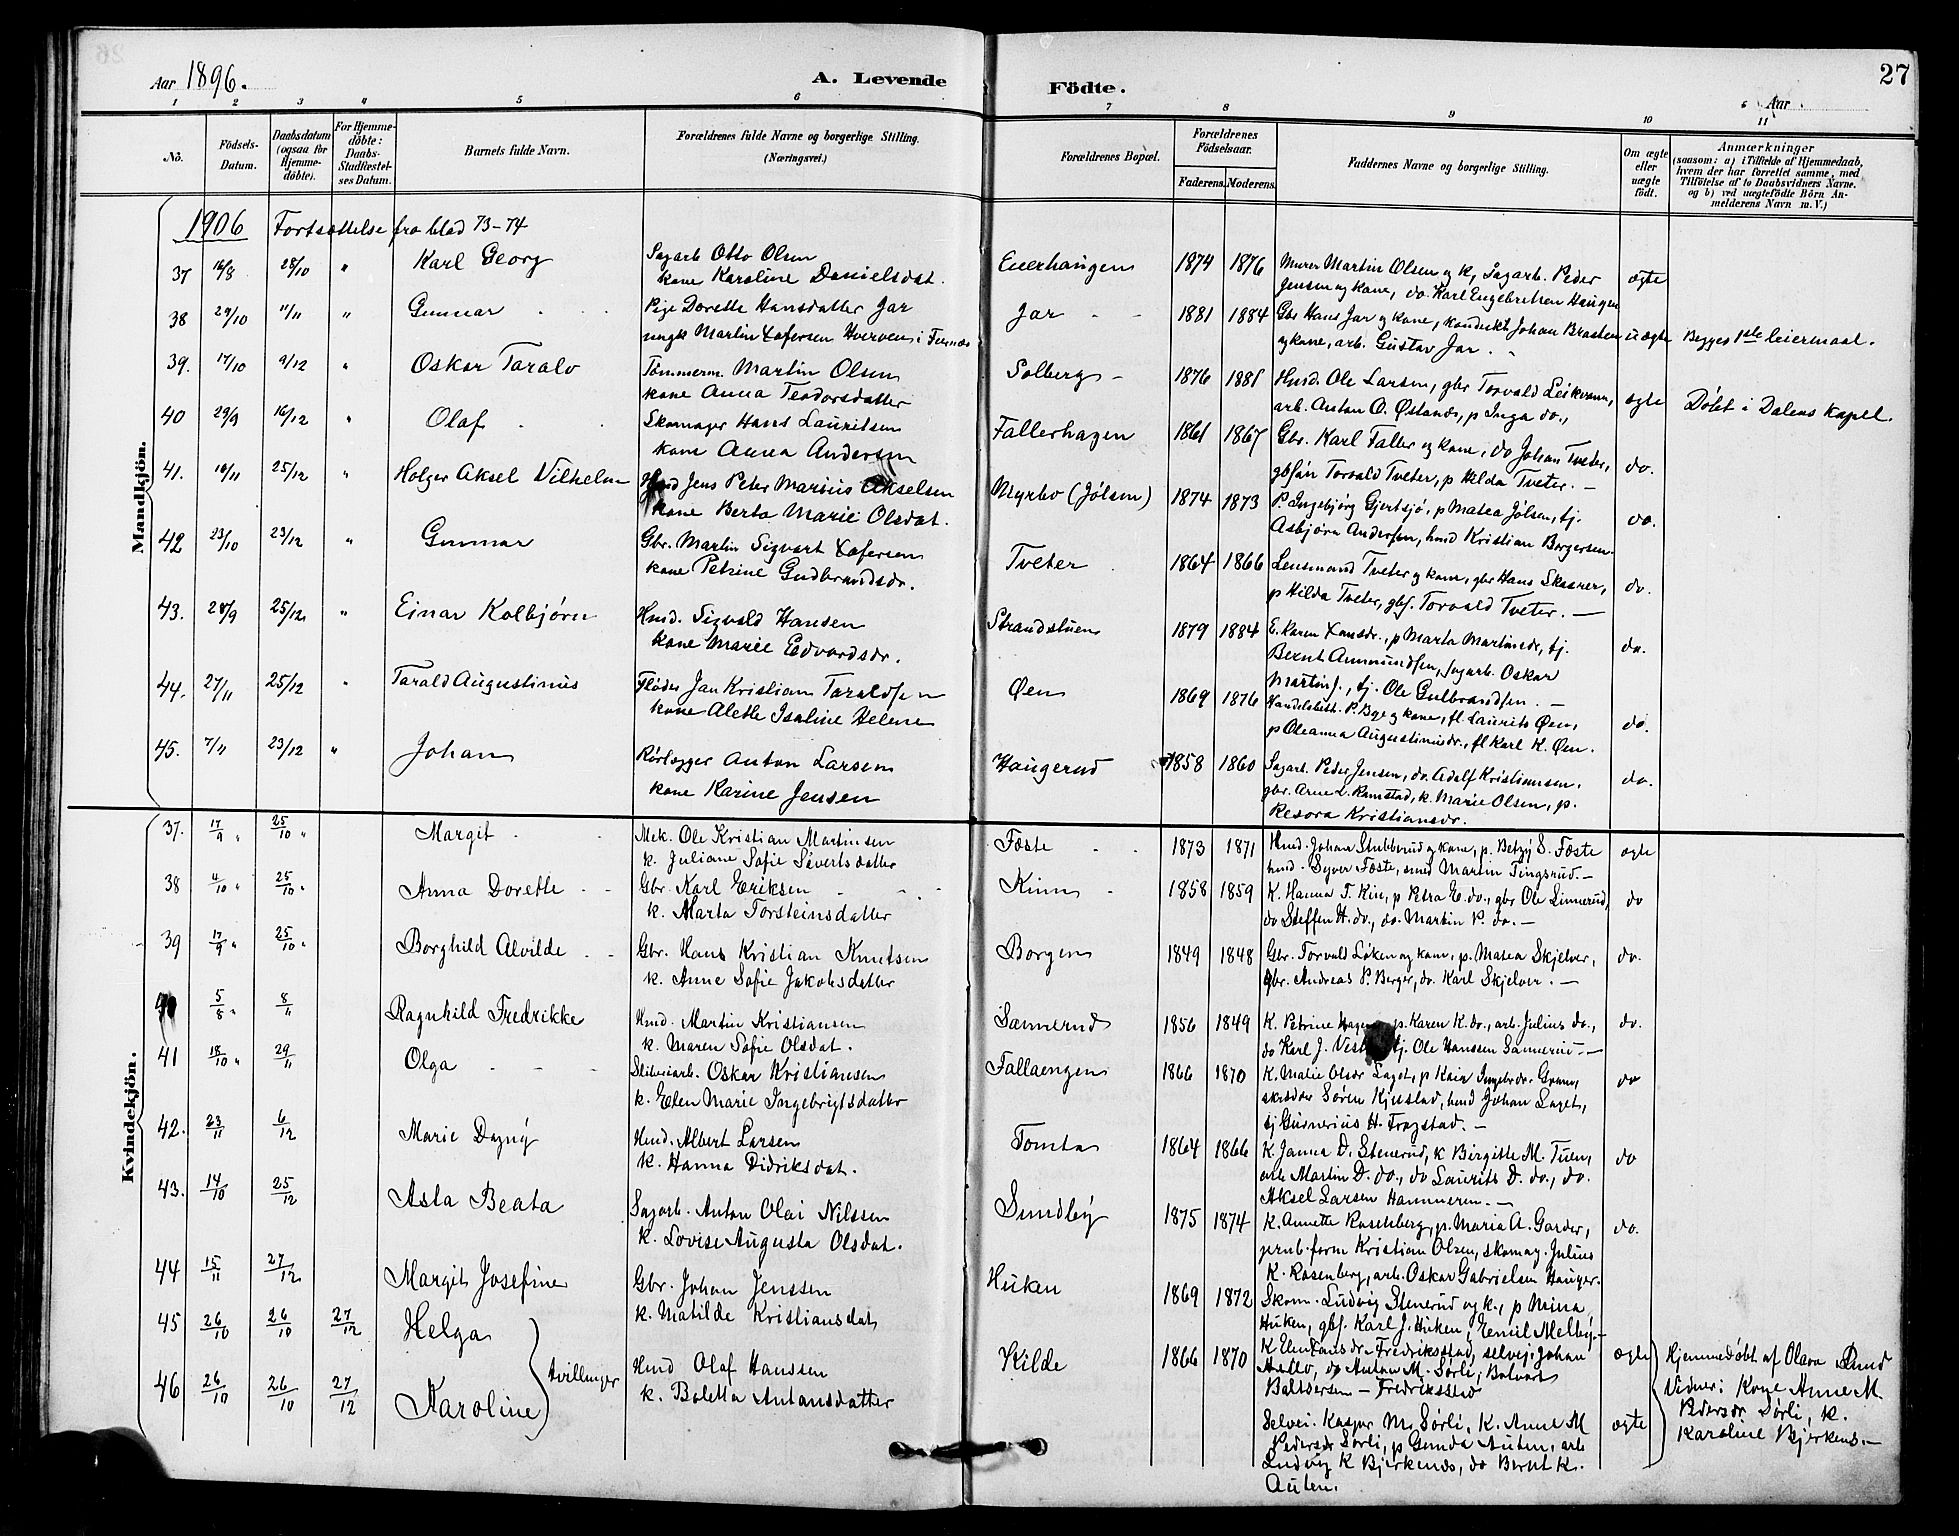 Aar 1896.
A. Levende Födte.
27
Aar
1 2 3 4 5 6 7 8 9 10 11
No.
Födsels-Datum.
Daabsdatum (ogsaa for Hjemme-döbte).
For Hjemme-döbte: Daabs-Stadfæstel-ses Datum.
Barnets fulde Navn.
Forældrenes fulde Navne og borgerlige Stilling. (Næringsvei.)
Forældrenes Bopæl.
Forældrenes Födselsaar.
Faderens. Moderens.
Faddernes Navne og borgerlige Stilling.
Om ægte eller uægte födt.
Anmærkninger
(saasom: a) i Tilfælde af Hjemmedaab, hvem der har forrettet samme, med Tilföielse af to Daabsvidners Navne. og b) ved uægtefödte Börn An-melderens Navn m. V.)
1906 Fortsættelse fra blad 73-74
Mandkjön.
37 16/8 28/10 " Karl Georg
Sagarb Otto Olsen
kone Karoline Danielsdat.
1874 1876
Murer Martin Olsen og k, Sagarb. Peder
Jensen og kone, do. Karl Engebretsen Haugen
ægte
38 29/10 11/11 " Gunnar
Pige Dorette Hansdatter Jar
ungk Martin Hverven i Fennæs
Jar 1881 1884
Gbr Hans Jar og kone, kondukt Johan Braathen
og kone, arb. Gustav Jar.
uægte
Begges 1ste leiermaal.
39. 17/10 9/12 " Oskar Taralv
Tømmerm. Martin Olsen
kone Anna Teodorsdatter
Solberg 1876 1881
Husd. Ole Larsen, gbr Torvald Leikvam,
arb. Anton O. Østands, p Inga do.,
ægte
Døbt i Dalens Kapel.
40 29/9 16/12 " Olaf
Skomager Hans Lauritsen
kone Anna Andersen
Fallerhagen 1861 1867
Gbr. Karl Faller og kone, do Johan Tveter,
gbsøn Torvald Tveter, p Hilda Tveter. —
do.
41. 10/11 25/12 " Holger Aksel Vilhelm
Hmd Jens Peter Marius Akselsen
kone Berta Marie Olsdat.
Myrbo (Jølsen) 1874 1873
P. Ingebjørg Gjertsjø, p Matea Jølsen, tj.
Asbjørn Andersen, hmd Kristian Borgersen.
do.
42 23/10 23/12 " Gunnar
Gbr. Martin Sigvart
kone Petrine Gudbrandsdr.
Tveter 1864 1866
Lensmand Tveter og kone, gbr Hans Skaarer,
p Hilda Tveter, gbs. Torvald Tveter. —
do.
43. 28/9 25/12 " Einar Kolbjørn
Hmd. Sigvald Hansen
kone Marie Edvardsdr.
Strandstuen 1879 1884
E. Karen Hansdr., p Marta Martinsdr, tj.
Bernt Ammundsen, sagarb. Oskar
Martins., tj. Ole Gulbrandsen. —
do.
44. 27/11 25/12 " Tarald Augustinus
Fløder Jan Kristian Taraldsen
kone Alette Isaline Helene
Øen 1869 1876
Handelsbet. P. Bye og kone, fl. Laurits Øen,
p Oleanna Augustinusdr., fl Karl K. Øen.
do.
45. 7/11 23/12 " Johan
Rørlægger Anton Larsen
kone Karine Jensen
Haugerud 1858 1860
Sagarb. Peder Jensen, do. Adolf Kristiansen,
gbr. Arne L. Ramstad, k. Marie Olsen, p.
Resora Kristiansdr.
do.
Kvindekjön.
37. 17/9 " 25/10 " Margit
Mek. Ole Kristian Martinsen
k. Juliane Sofie Sivertsdatter
Føste 1873 1871
Hmd. Johan Stubberud og kone, p. Betzy S. Føste
hmd. Syver Føste, smed Martin Tingsrud. —
ægte
38 4/10 " 25/10 " Anna Dorette
Gbr. Karl Eriksen
k. Marta Torsteinsdatter
Kinn 1858 1859
K. Hanna T. Kin, p Petra E. do., gbr Ole Linnerud,
do Steffen H. do., do. Martin P. do. —
do
39 17/9 " 25/10 " Borghild Alvilde
Gbr. Hans Kristian Knutsen
k. Anne Sofie Jakobsdatter
Borgen 1849 1848
Gbr. Torvald Løken og kone, p. Matea Skjelver,
Gbr. Andreas P. Berger, do. Karl Skjelver. —
do.
40 5/8 " 8/11 Ragnhild Fredrikke
Hmd. Martin Kristiansen
k. Maren Sofie Olsdat.
Sannerud 1856 1849
K. Petrine Hagen, p. Karen K. do., arb. Julius do.,
do Karl J. tj. Ole Hanssen Sannerud. —
do.
41 18/10 " 29/11 Olga
Sliberiarb. Oskar Kristiansen
k. Elen Marie Ingebrigtsdatter
Fallaengen 1866 1870
K. Matie Olsdr Laget, p Karin Ingebrdr.
Søren Kjustad, hmd Johan Laget,
tj Gunnerius H. Frogstad. —
do
42. 23/11 6/12 Marie Dagny
Hmd. Albert Larsen
k. Hanna Didriksdat.
Tomta 1864 1866
K. Janna D. Stenerud, k Birgitte M. Tuen,
arb Martin D. do., do Laurits D. do., do.
Aksel Larsen Hammeren. —
do
43. 14/10 25/12 Asta Beata
Sagarb. Anton Olai Nilssen
k. Lovise Augusta Olsdat.
Sundby 1875 1874
K. Annette Rosenberg, p. Maria A. Garder,
jernb. form Kristian Olsen, skomag. Julius
K. Rosenberg, arb. Oskar Gabrielsen Hauger.
do.
44 15/11 27/12 Margit Josefine
Gbr. Johan Jenssen
k. Matilde Kristiansdat
Huken 1869 1872
Skom. Ludvig Stenerud og k., p Mina
Huken, gbs. Karl J. Huken, Emil Melby. —
45 26/10 26/10 27/12 Helga
46 26/10 26/10 27/12 Karoline
Tvillinger
Hmd Olaf Hanssen
k. Boletta Antonsdatter
Kilde 1866 1870
K Elen Fredriksstad, selvej. Johan
do Anton M. Sørli,
Baltsersen — Fredriksstad
ægte
Selvei. Kasper M. Sørli, K. Anne M
Pedersdr Sørli, p Gunda Auten, arb
Ludvig K Bjerkenes, do Bernt K.
Auten.
ægte
Hjemmedøbt af Olava Rud
Vidner: Kone Anne M.
Pedersdr Sørli, k.
Karoline Bjerkens. —